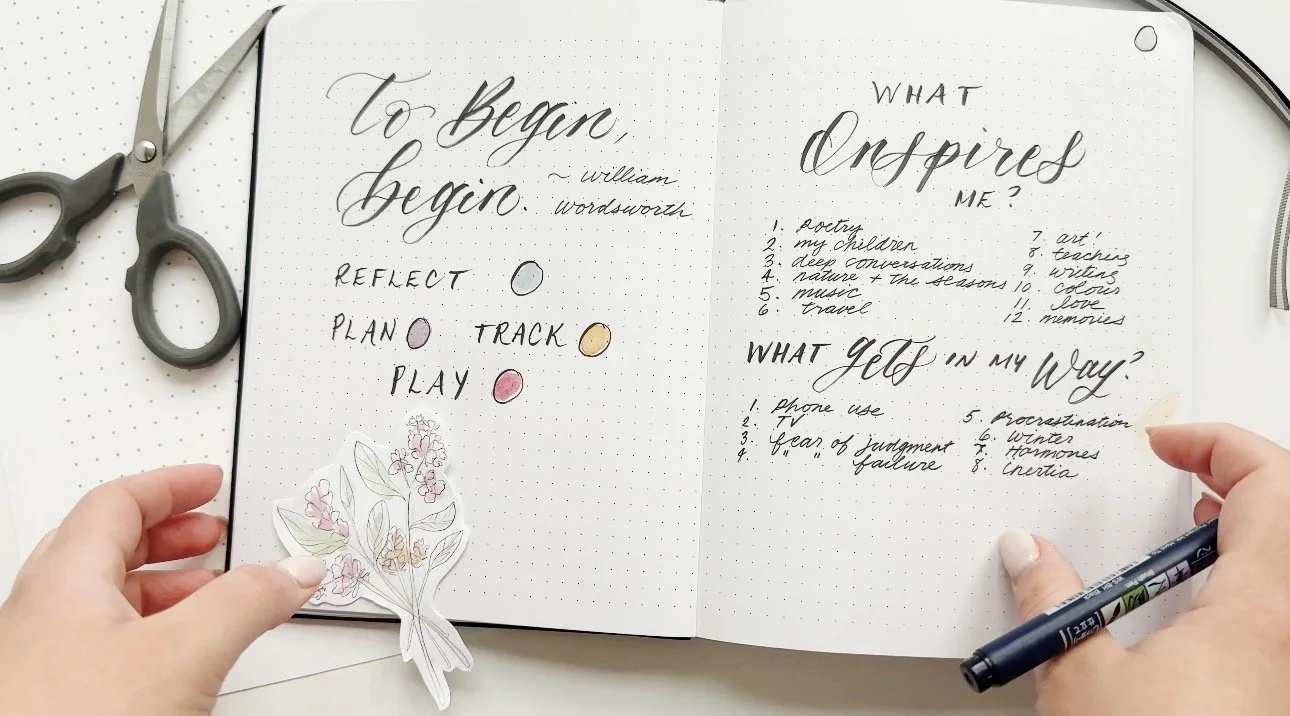 To Begin,
begin.
~ william
wordsworth
REFLECT
PLAN TRACK
PLAY
WHAT
Inspires
ME?
1. Poetry
2. my children
3. deep conversations
4. nature + the seasons
5. music
6. travel
7. art!
8. teaching
9. writing
10. colour
11. love
12. memories
WHAT gets IN MY Way?
1. Phone use
2. TV
3. fear of judgment
4. " " failure
5. Procrastination
6. Winter
7. Hormones
8. Inertia